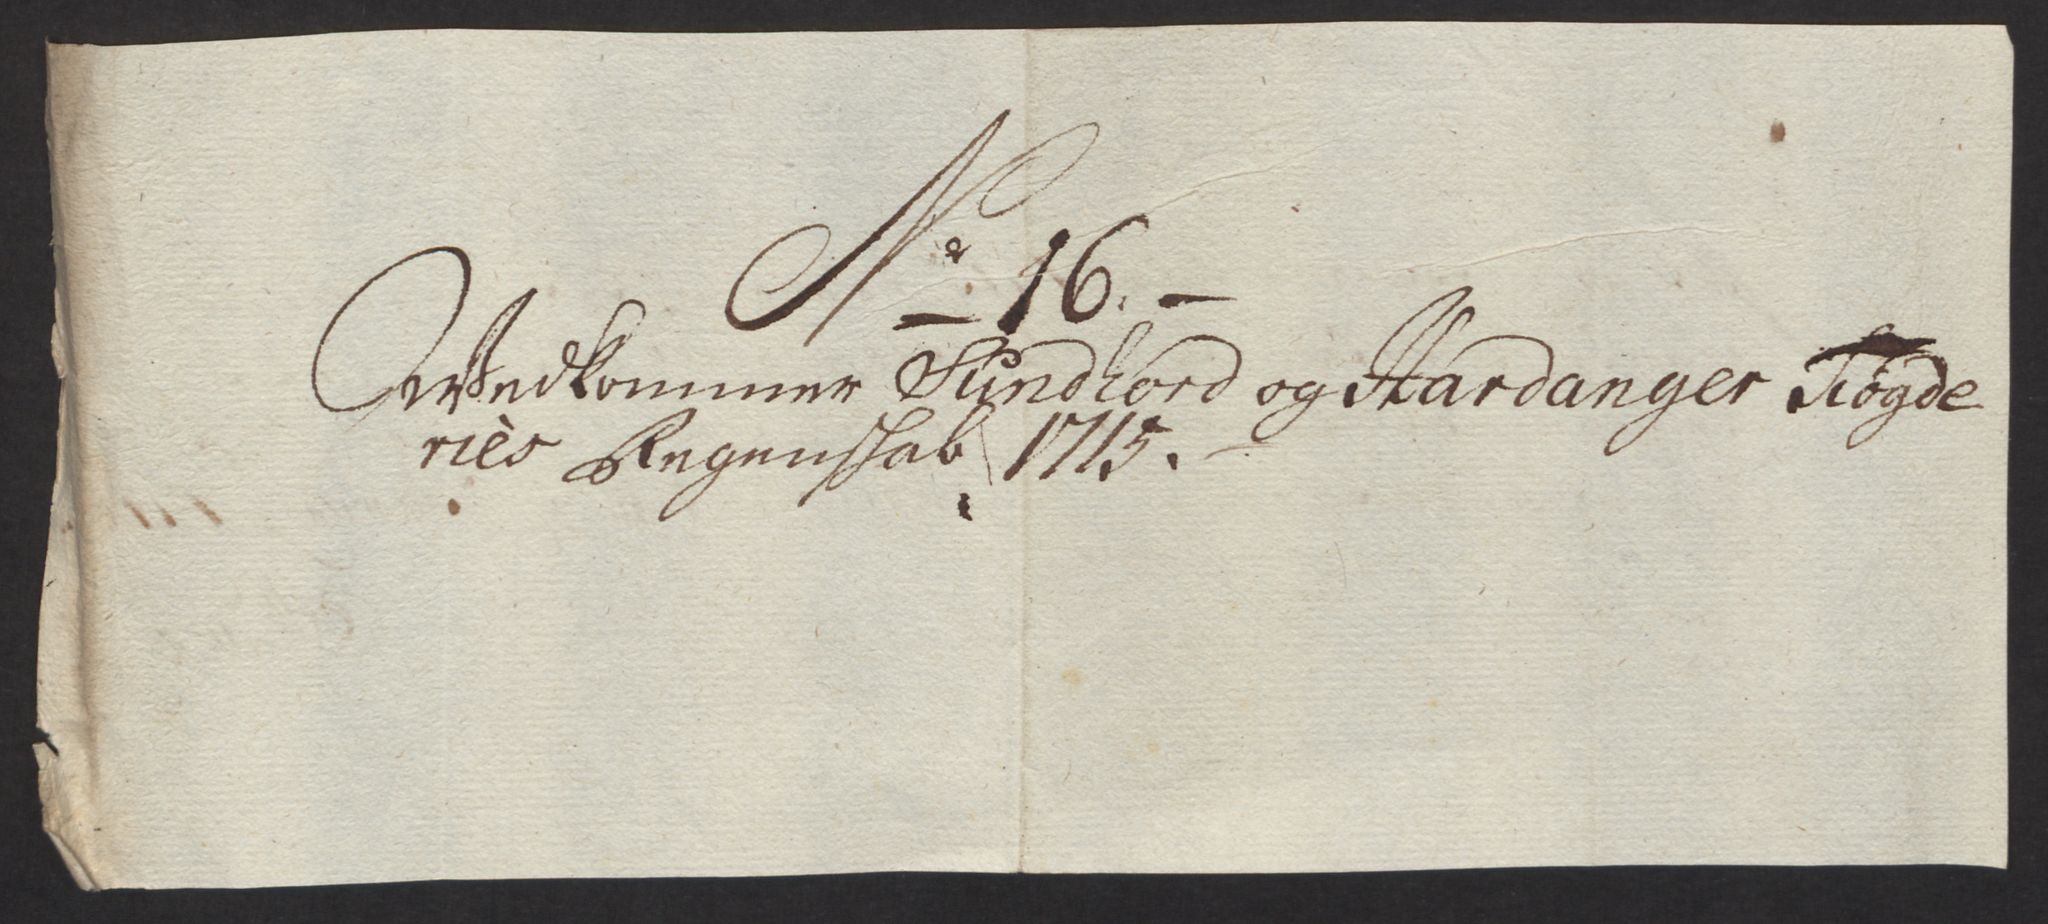 No 16.
Vedkommer Sundhord og Hardanger Fiogde
ries Regenskab 1715.